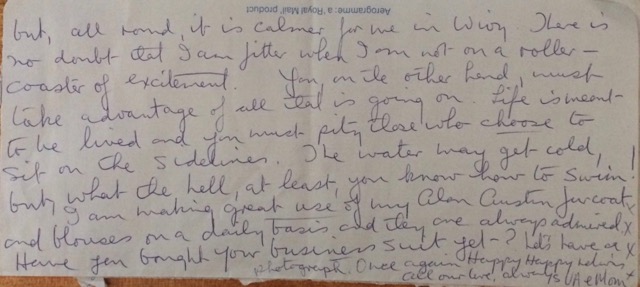 Aerogramme: a 'Royal Mail' product
but, all round, it is calmer for me in Wivy There is
no doubt that I am fitter when I am not on a roller-
coaster of excitement. You, on the other hand, must
take advantage of all that is going on. Life is meant
to be lived and you must pity those who choose to
sit on the sidelines. The water may get cold,
but, what the hell, at least, you know how to swim!
I am making great use of my Alan Austin furcoats
and blouses on a daily basis and they are always admired X
Have you bought your business suit yet-? Let's have a X
photograph. Once again, Happy Happy returns
all our love, always & Mom